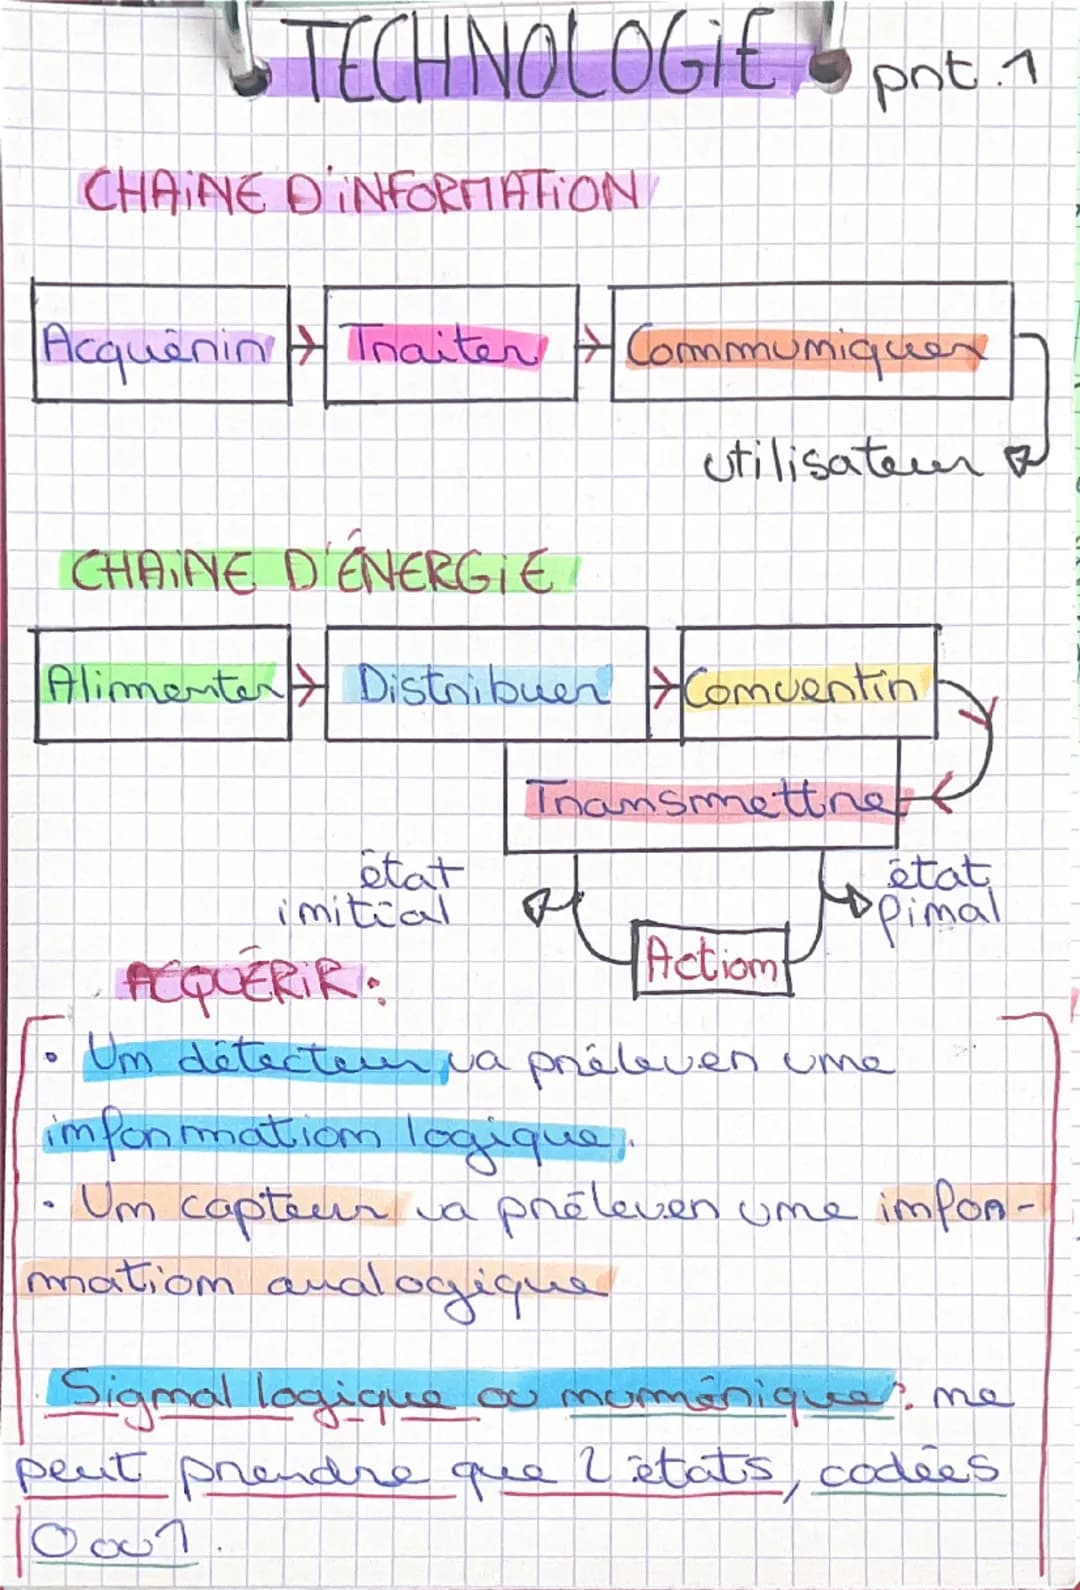 TECHNOLOGIE pnt.1
CHAINE D'INFORMATION
Acquérir Traiter Communiquer
utilisateur
CHAINE D'ÉNERGIE
Alimenter Distribuer Convertir
Transmettre
état
initial
état
final
Action
ACQUÉRIR:
• Un détecteur va prélever une
information logique.
• Un capteur va prélever une infor-
mation analogique
Signal logique ou numérique: ne
peut prendre que 2 états, codées
0 ou 1.